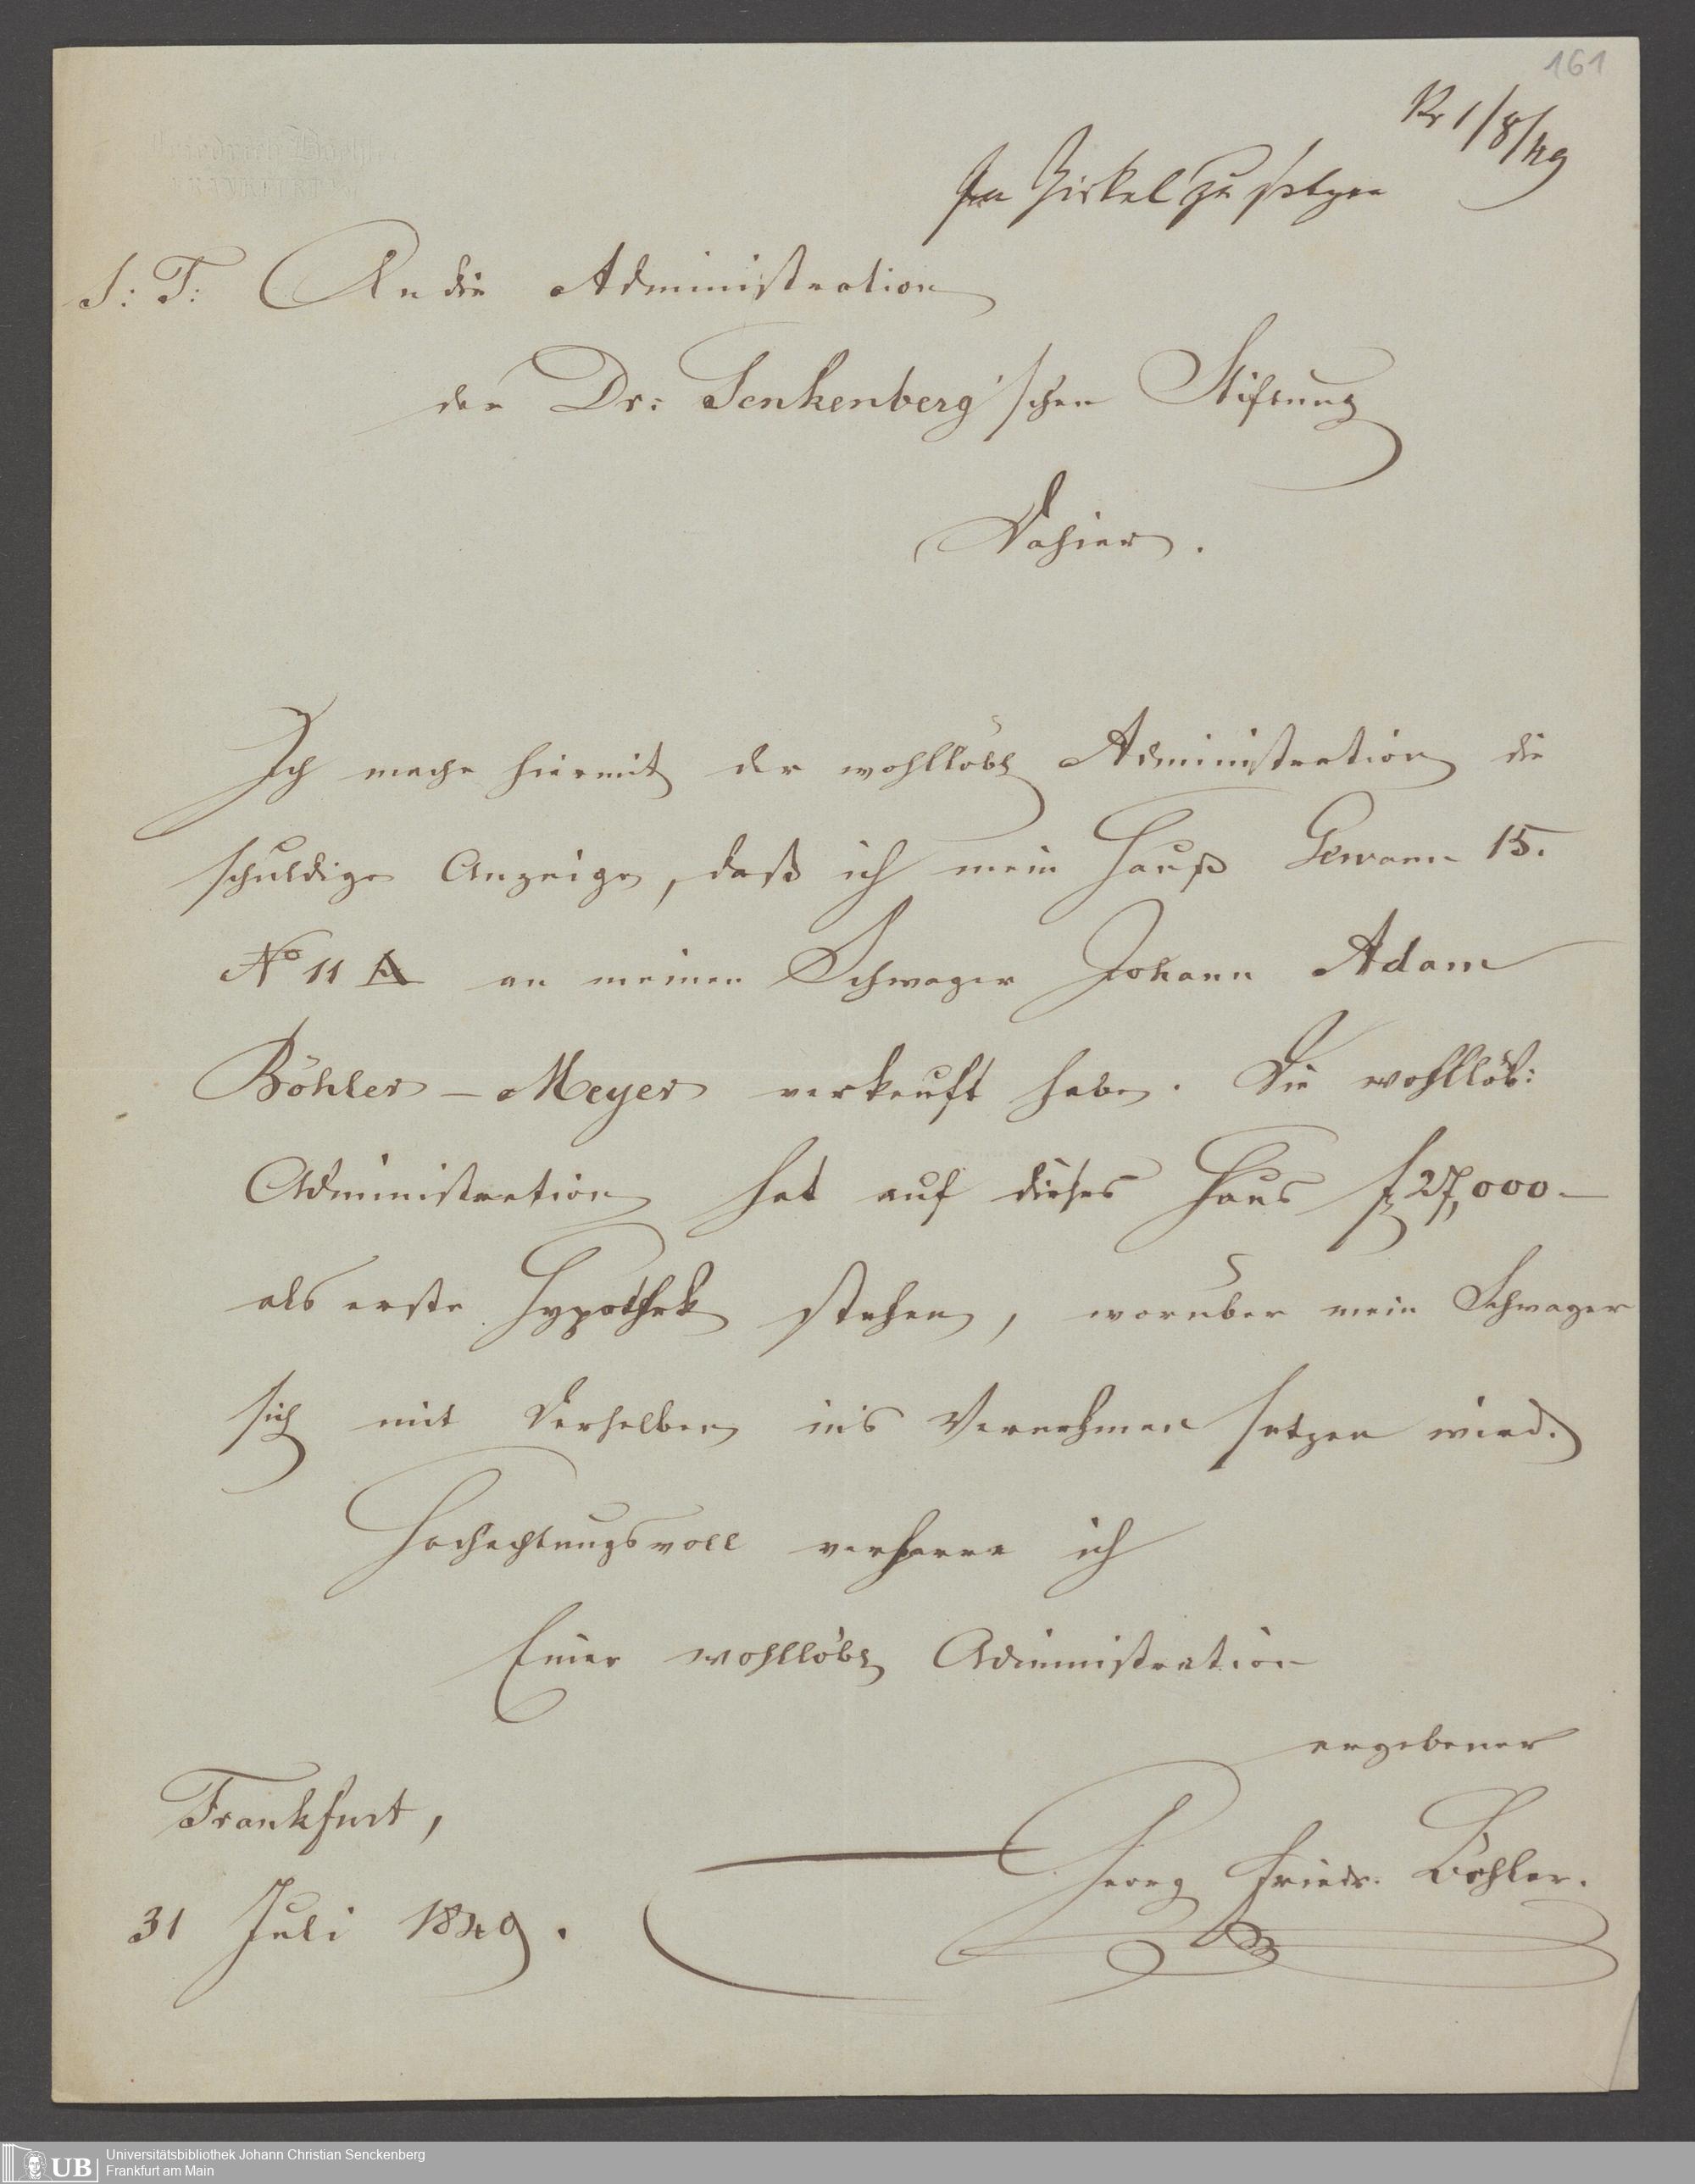 161
Pr 1/8/49
In Zirkel zu setzen
S: T: An die Administration
der Dr: Senkenberg'schen Stiftung
Dahier.
Ich mache hiermit der wohllöbl Administration die
schuldige Anzeige, daß ich mein Hauß Gewann 15.
No 11 A an meinen Schwager Johann Adam
Böhler - Meyer verkauft habe. Die wohllöb:
Administration hat auf dieses Haus f 27,000 -
als erste Hypothek stehen, worüber mein Schwager
sich mit derselben in's Vernehmen setzen wird.
Hochachtungsvoll verharre ich
Einer wohllöbl Administration
ergebener
Frankfurt,
Georg Friedr. Böhler.
31 Juli 1849.
UB Universitätsbibliothek Johann Christian Senckenberg
Frankfurt am Main